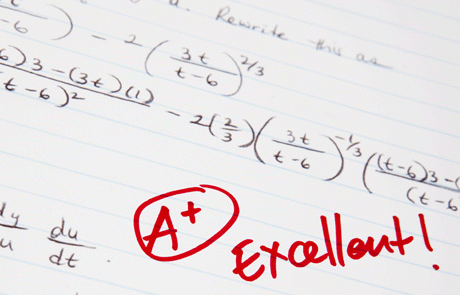 u. Rewrite this as
) - 2 (3t / t-6)^2/3
6)3-(3t)(1) / t-6)² - 2(2/3)(3t / t-6)^-1/3 ((t-6)3- / (t-6
dy / u du / dt .
A+
Excellent!